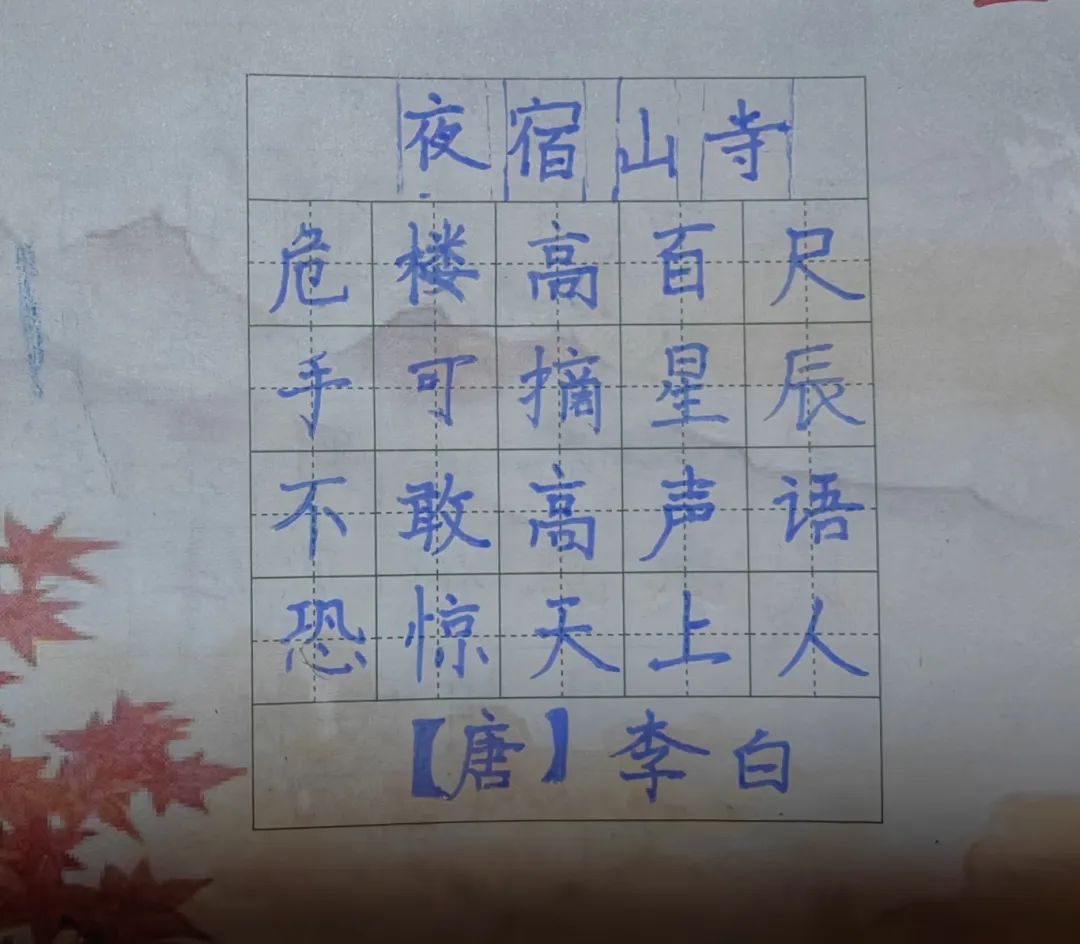 夜宿山寺
危楼高百尺
手可摘星辰
不敢高声语
恐惊天上人
【唐】李白